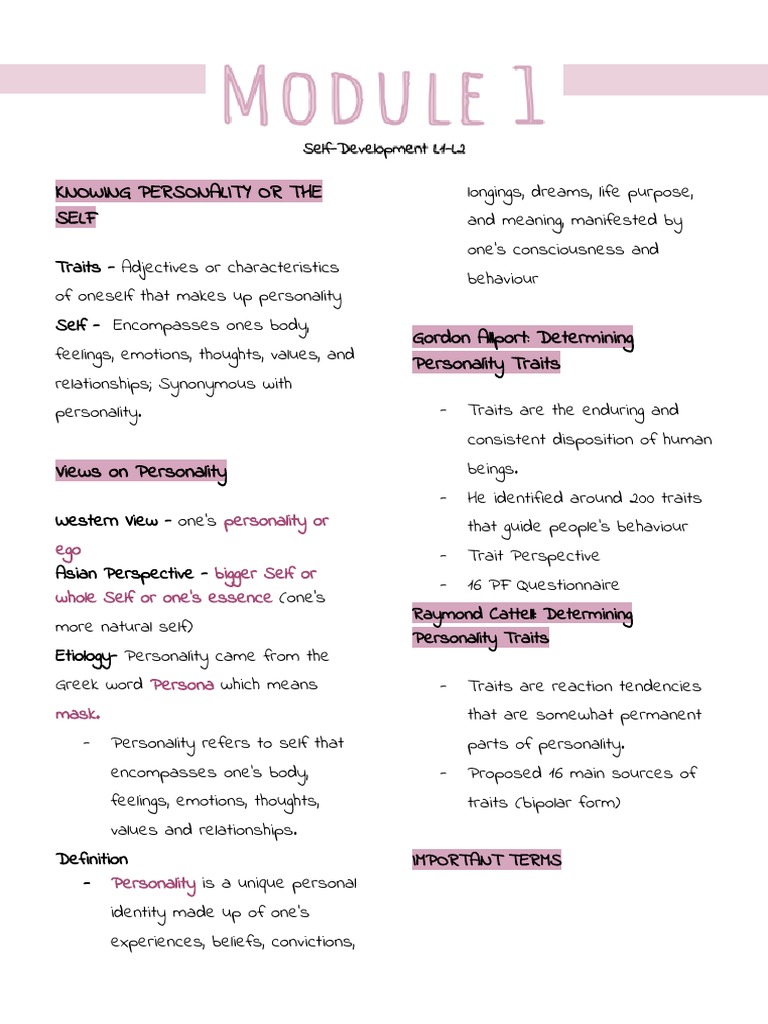 MODULE 1
Self-Development L1-L2
KNOWING PERSONALITY OR THE
SELF
Traits - Adjectives or characteristics
of oneself that makes up personality
Self - Encompasses ones body,
feelings, emotions, thoughts, values, and
relationships; Synonymous with
personality.
Views on Personality
Western View - one's personality or
ego
Asian Perspective - bigger Self or
whole Self or one's essence (one's
more natural self)
Etiology- Personality came from the
Greek word Persona which means
mask.
- Personality refers to self that
encompasses one's body,
feelings, emotions, thoughts,
values and relationships.
Definition
- Personality is a unique personal
identity made up of one's
experiences, beliefs, convictions,
longings, dreams, life purpose,
and meaning, manifested by
one's consciousness and
behaviour
Gordon Allport: Determining
Personality Traits
- Traits are the enduring and
consistent disposition of human
beings.
- He identified around 200 traits
that guide people's behaviour
- Trait Perspective
- 16 PF Questionnaire
Raymond Cattell: Determining
Personality Traits
- Traits are reaction tendencies
that are somewhat permanent
parts of personality.
- Proposed 16 main sources of
traits (bipolar form)
IMPORTANT TERMS